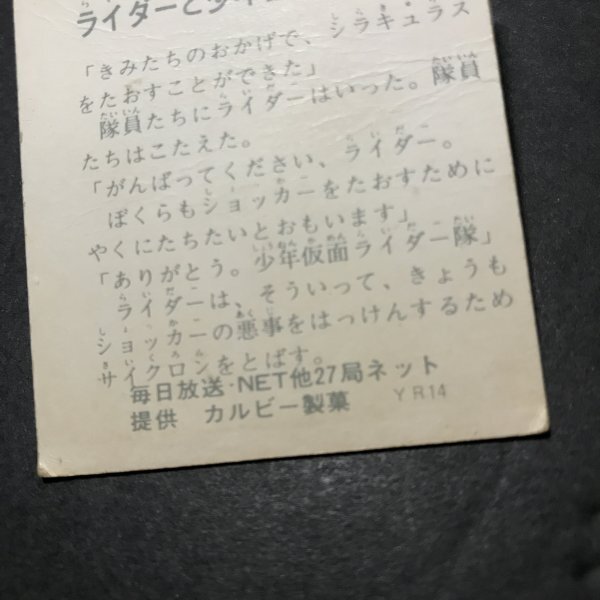 ライダーと少年
「きみたちのおかげで、シラキュラス
をたおすことができた」
隊員たちにライダーはいった。隊員
たちはこたえた。
「がんばってください、ライダー。
ぼくらもショッカーをたおすために
やくにたちたいとおもいます」
「ありがとう。少年仮面ライダー隊」
ライダーは、そういって、きょうも
ショッカーの悪事をはっけんするため
サイクロンをとばす。
毎日放送・NET他27局ネット
提供 カルビー製菓 YR14